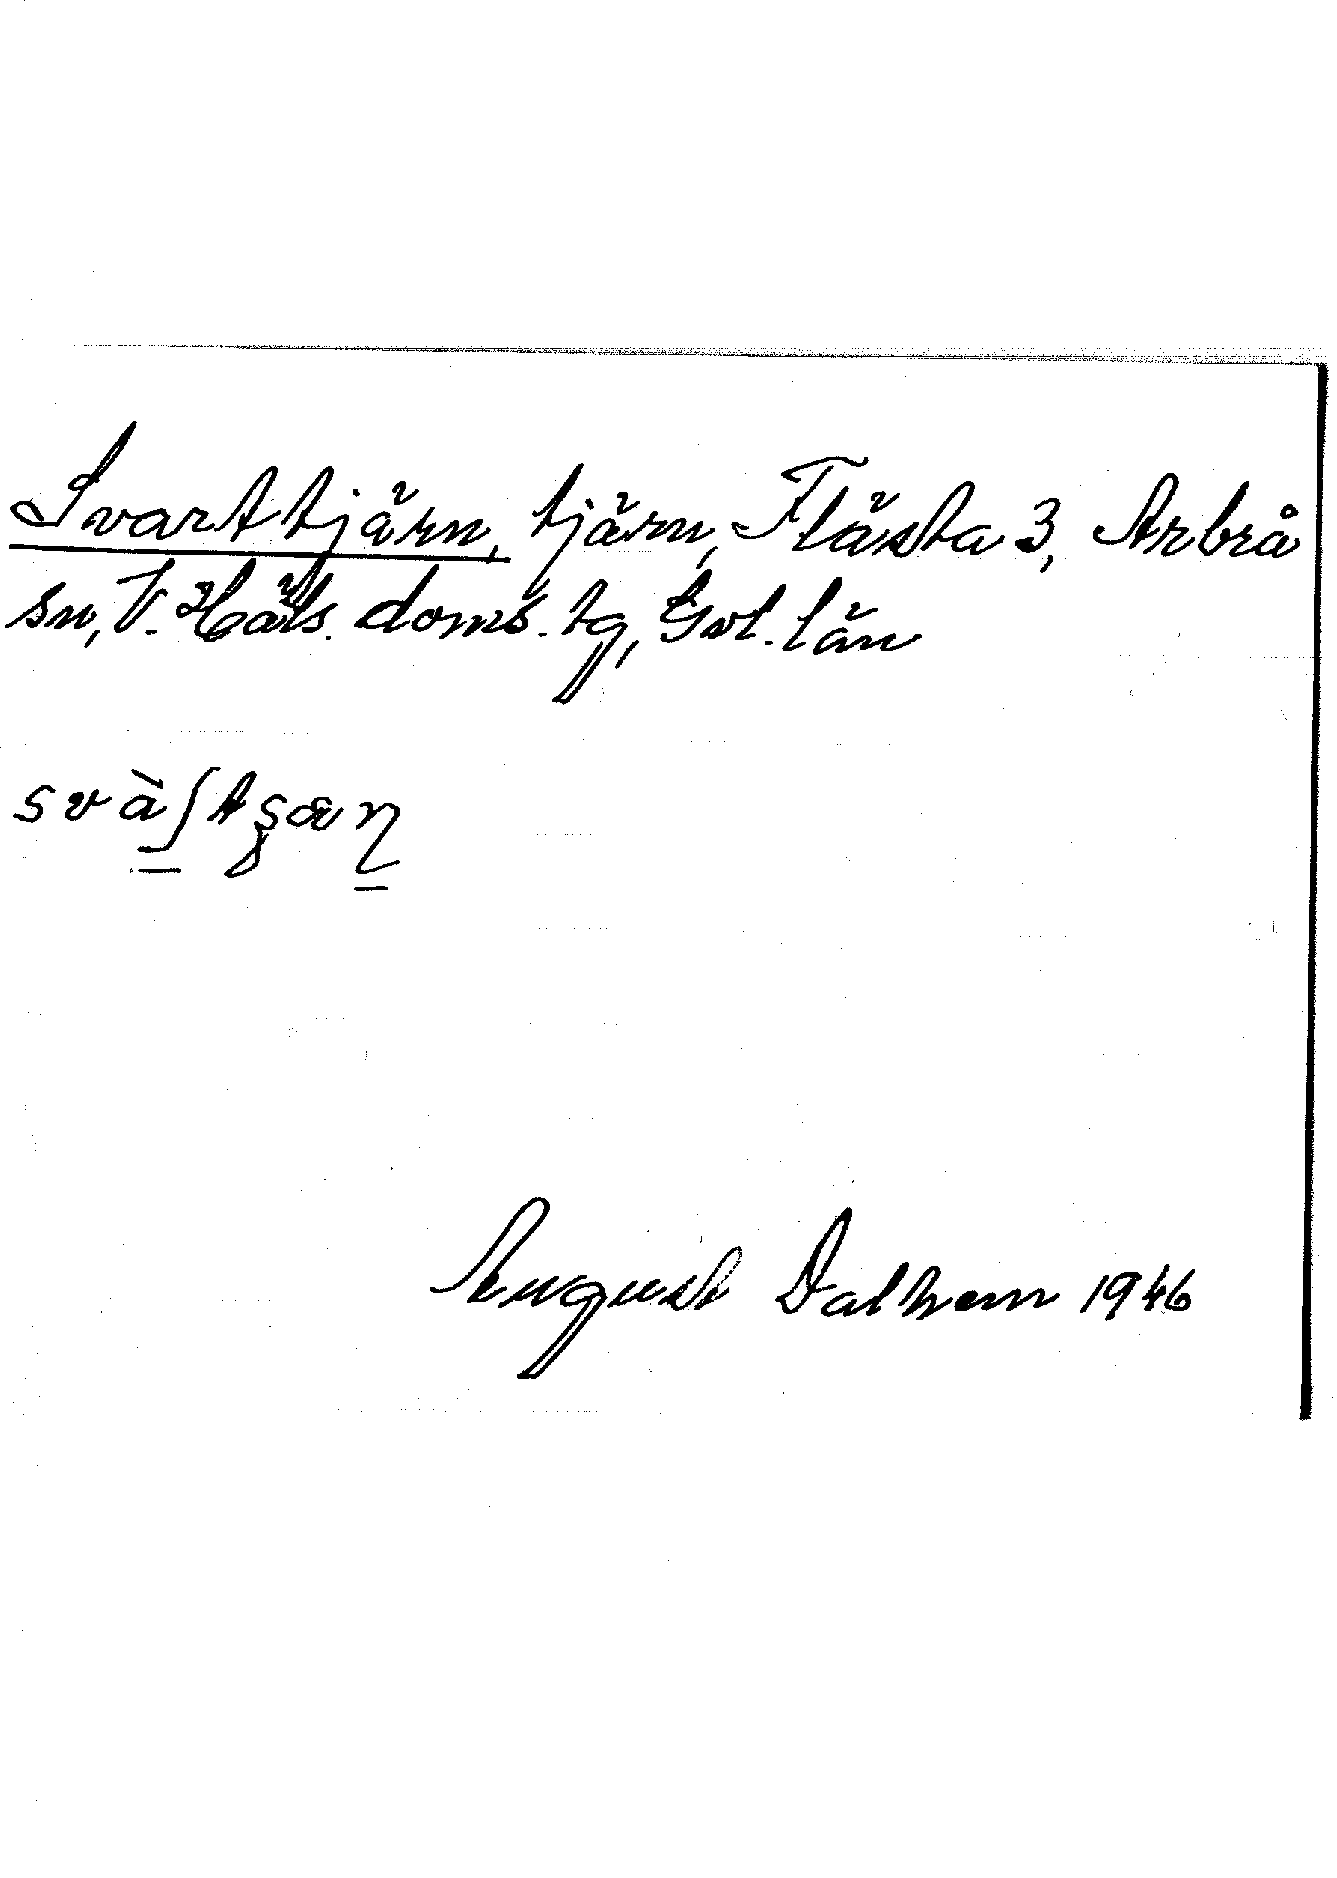 Svarttjärn, tjärn, Flästa 3, Arbrå
sn, V. Häls. doms. tg, Gvl. län
svàʃtşæɳ
August Dalhem 1946